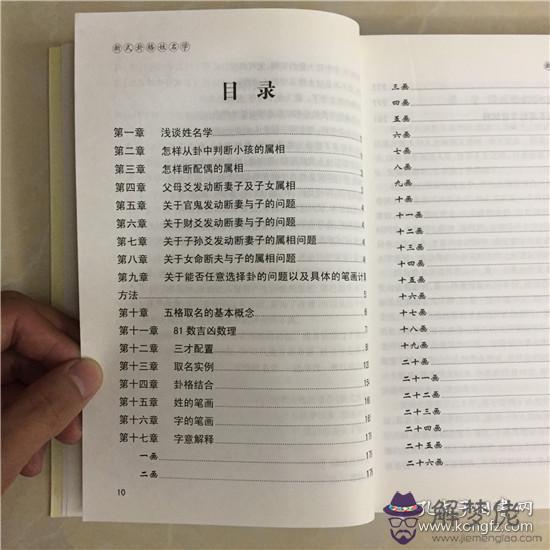 新式卦格姓名学
目 录
第一章 浅谈姓名学
第二章 怎样从卦中判断小孩的属相
第三章 怎样断配偶的属相
第四章 父母爻发动断妻子及子女属相
第五章 关于官鬼发动断妻与子的问题
第六章 关于财爻发动断妻与子的问题
第七章 关于子孙爻发动断妻子的属相问题
第八章 关于女命断夫与子的属相问题
第九章 关于能否任意选择卦的问题以及具体的笔画计
方法
第十章 五格取名的基本概念
第十一章 81 数吉凶数理
第十二章 三才配置
第十三章 取名实例
第十四章 卦格结合
第十五章 姓的笔画
第十六章 字的笔画
第十七章 字意解释
一画
二画
10
三画
四画
五画
六画
七画
八画
九画
十画
十一画
十二画
十三画
十四画
十五画
十六画
十七画
十八画
十九画
二十画
二十一画
二十二画
二十三画
二十四画
二十五画
二十六画
解梦虎
www.jiemenglao.com